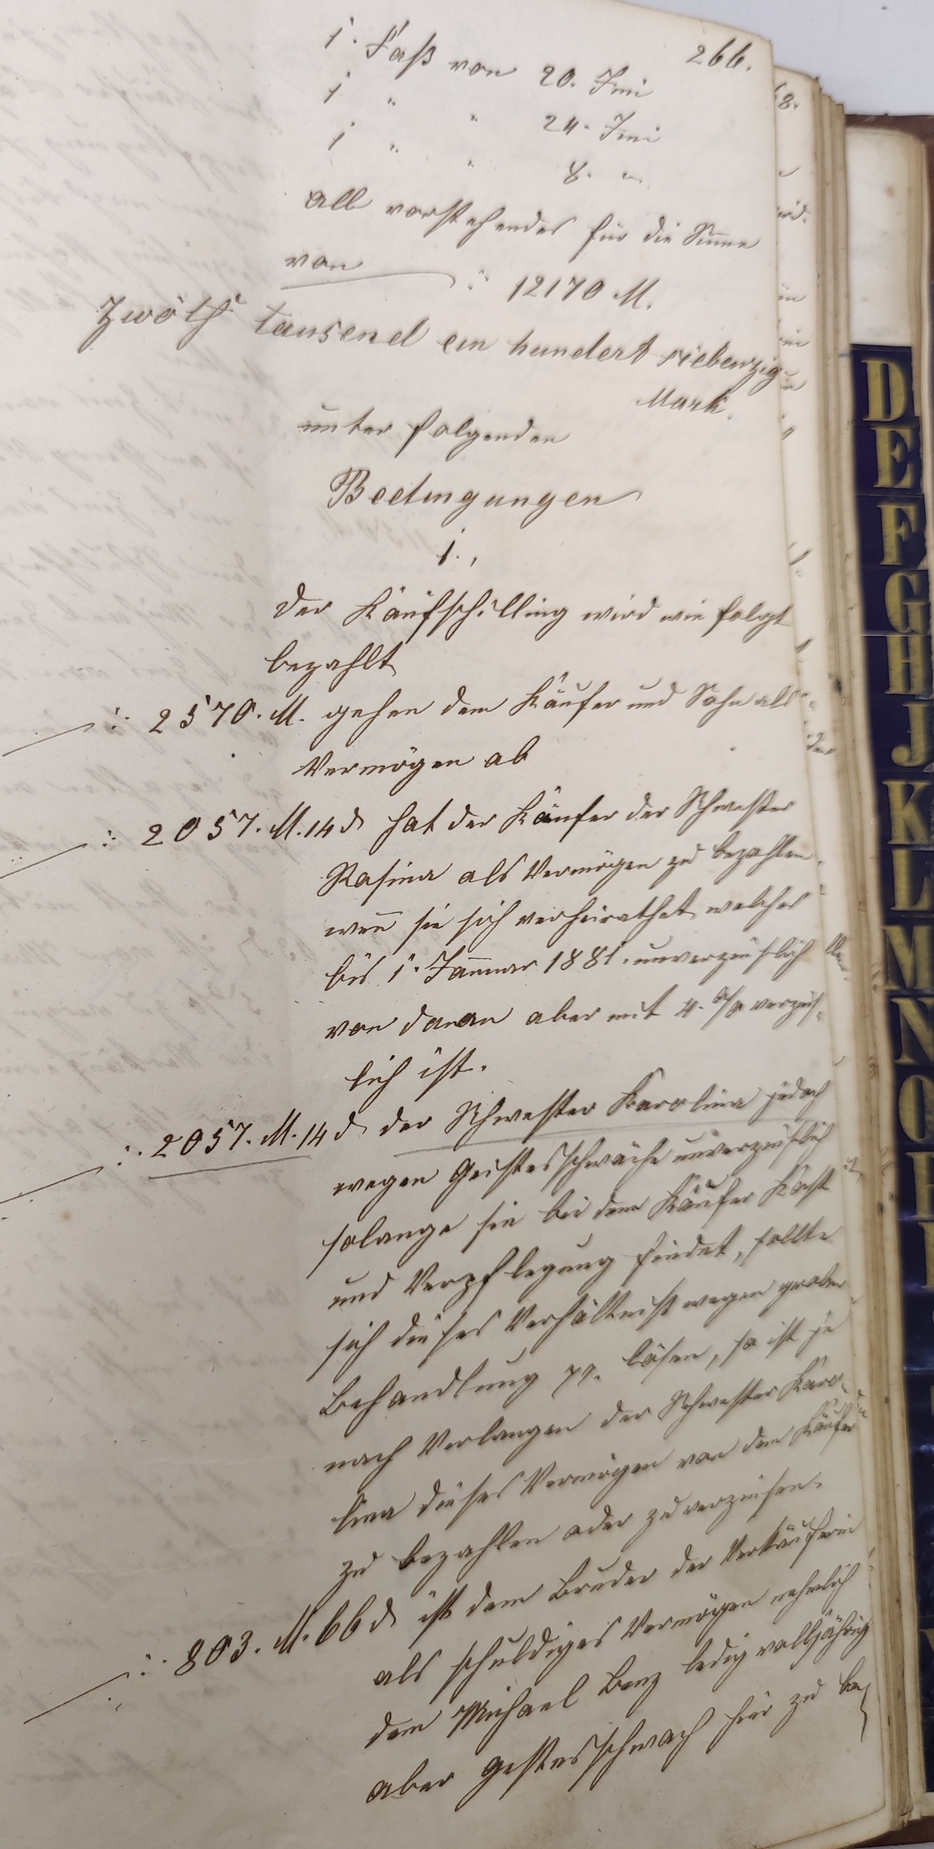 266.
1. Faß von 20. Imi
1 " " 24. Imi
1 " " 8. "
all vorstehendes für die Suma
von : 12170 M.
Zwölf tausend ein hundert siebenzig
Mark.
unter folgenden
Bedingungen
1.,
Der Kaufschilling wird wie folgt
bezahlt
2570. M. gehen dem Käufer und Sohn als
Vermögen ab
2057. M. 14 d hat der Käufer der Schwester
Rosina als Vermögen zu bezahlen
wenn sie sich verheirathet welches
bis 1. Januar 1881. unverzinslich
von daran aber mit 4. % verzins
lich ist.
2057. M. 14 d der Schwester Karolina jedoch
wegen Geistesschwäche unverzinslich
solange sie bei dem Käufer Kost
und Verpflegung findet, sollte
sich dieses Verhältniß wegen grober
Behandlung lösen, so ist je
nach Verlangen der Schwester Karo-
lina dieses Vermögen von dem Käufer
zu bezahlen oder zu verzinsen.
803. M. 66 d ist dem Bruder der Verkäuferin
als schuldiges Vermögen nehmlich
dem Michael Benz ledig volljährig
aber Geistesschwach hier zu be
D
E
F
G
H
J
K
L
M
N
O
P